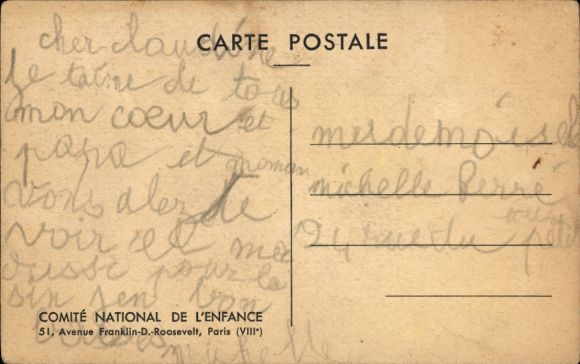 CARTE POSTALE
cher claudine
je taine de tous
mon cœur et
papa et maman
vons aler te
voir et moi
ausse pour la
sin
mesdemoiselle
michelle Perré
194 rue du
COMITÉ NATIONAL DE L'ENFANCE
51, Avenue Franklin-D.-Roosevelt, Paris (VIIIe)